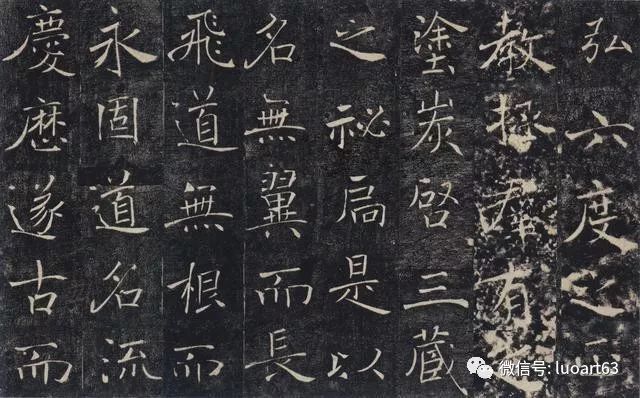 弘六度之正
教拯羣有之
塗炭啓三藏
之祕扃是以
名無翼而長
飛道無根而
永固道名流
慶歷遂古而
微信号: luoart63